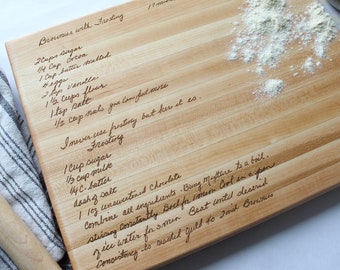 Brownies with Frosting
2 cups sugar
1/4 cup cocoa
1 cup butter melted
4 eggs
2 tsp vanilla
1 1/2 cups flour
1 tsp salt
1/2 cup nuts
I never use frosting but here it is.
Frosting
1 cup sugar
1/3 cup milk
1/4 C. butter
dash of salt
1 1 oz unsweetened chocolate
combine all ingredients. Bring mixture to a boil,
stirring constantly. Boil for 1 min. Cool in a pan
of ice water for 5 min. Beat until desired
consistency to spread